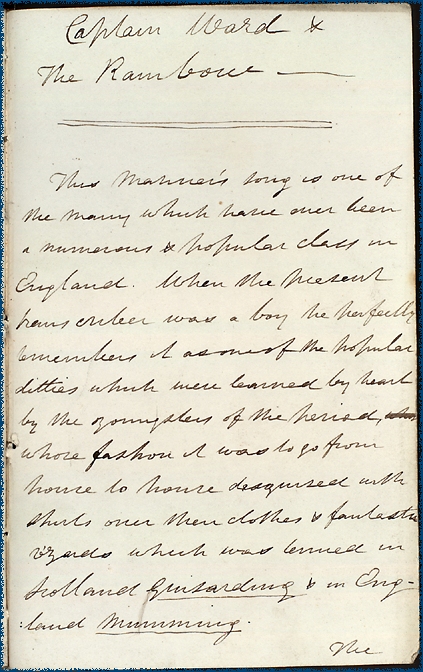 Captain Ward &
The Rainbow —
This Mariner's song is one of
the many which have ever been
a numerous & popular class in
England. When the present
transcriber was a boy he perfectly
remembers it as one of the popular
ditties which were learned by heart
by the youngsters of the period,
whose fashion it was to go from
house to house desguised with
shirts over their clothes & fantastic
vizards which was termed in
Scotland Guisarding & in Eng-
:land Mumming.
The